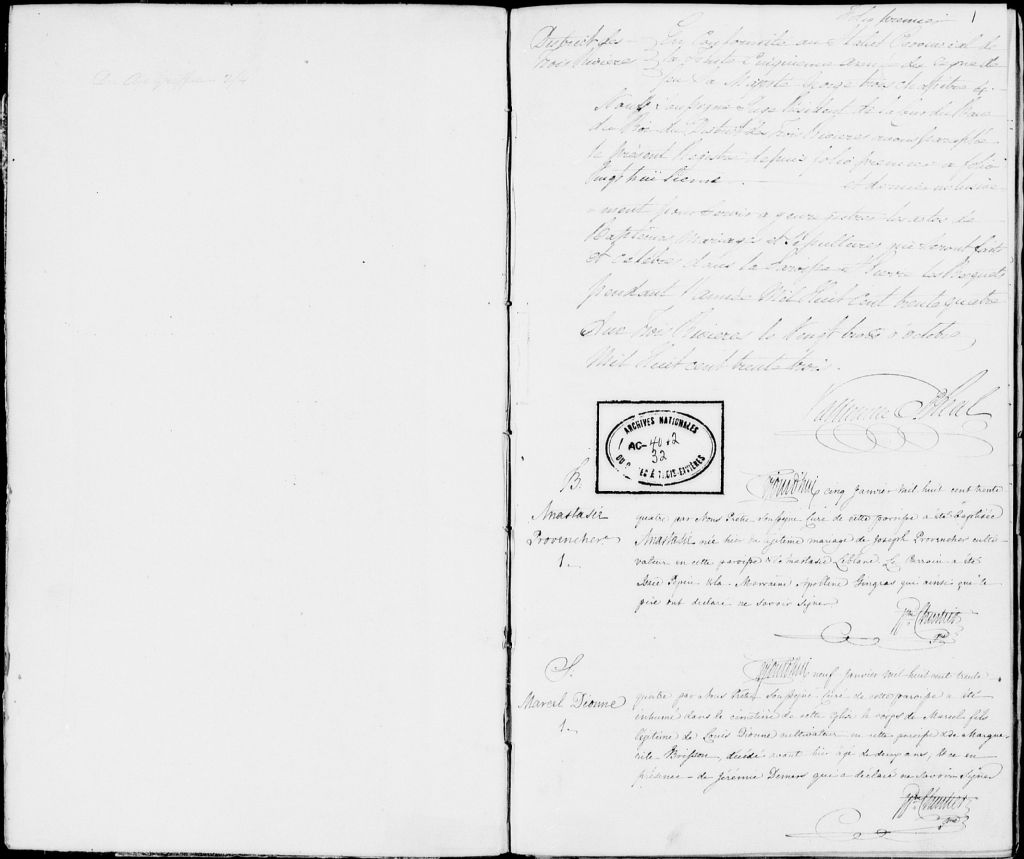 folio premier 1
District des
Trois Rivieres
En Conformité au Statut Provincial de
la trente Cinquieme année du regne de
feu Sa Majesté George trois chapitre 4.
Nous Soussigné Juge Résident de la Cour du Banc
du Roi du District des Trois Rivieres avons paraphé
le présent Registre depuis folio premier a folio
Vingt huitieme et dernier inclusive-
-ment pour servir a enregistrer les actes de
Baptêmes Mariages et Sépultures qui seront faits
et célébrés dans la Paroisse St Pierre les Becquets
pendant l'année Mil Huit Cent trente quatre
Aux Trois Rivieres le Vingt trois d'octobre
Mil Huit cent trente trois.
ARCHIVES NATIONALES
1 AC-
32
B.
Anastasie
Provencher
1.
Aujourd'hui cinq janvier mil huit cent trente
quatre par Nous Pretre soussigné Curé de cette paroisse a été Baptisée
Anastasie née hier du légitime mariage de Joseph Provencher culti-
vateur en cette paroisse & d'Anastasie Leblanc Le Parrain a été
Pepin & la Marraine Apolline Gingras qui ainsi que le
père ont déclaré ne savoir signer
Ptre
S.
Marcel Dionne
1.
Aujourd'hui neuf janvier mil huit cent trente
quatre par Nous Pretre Soussigné Curé de cette paroisse a été
inhumé dans le cimetière de cette église le corps de Marcel fils
légitime de Louis Dionne cultivateur en cette paroisse & de Margue-
rite Brisson, décédé avant hier âgé de deux ans, & ce en
présence de Jérémie Demers qui a déclaré ne savoir signer
Ptre